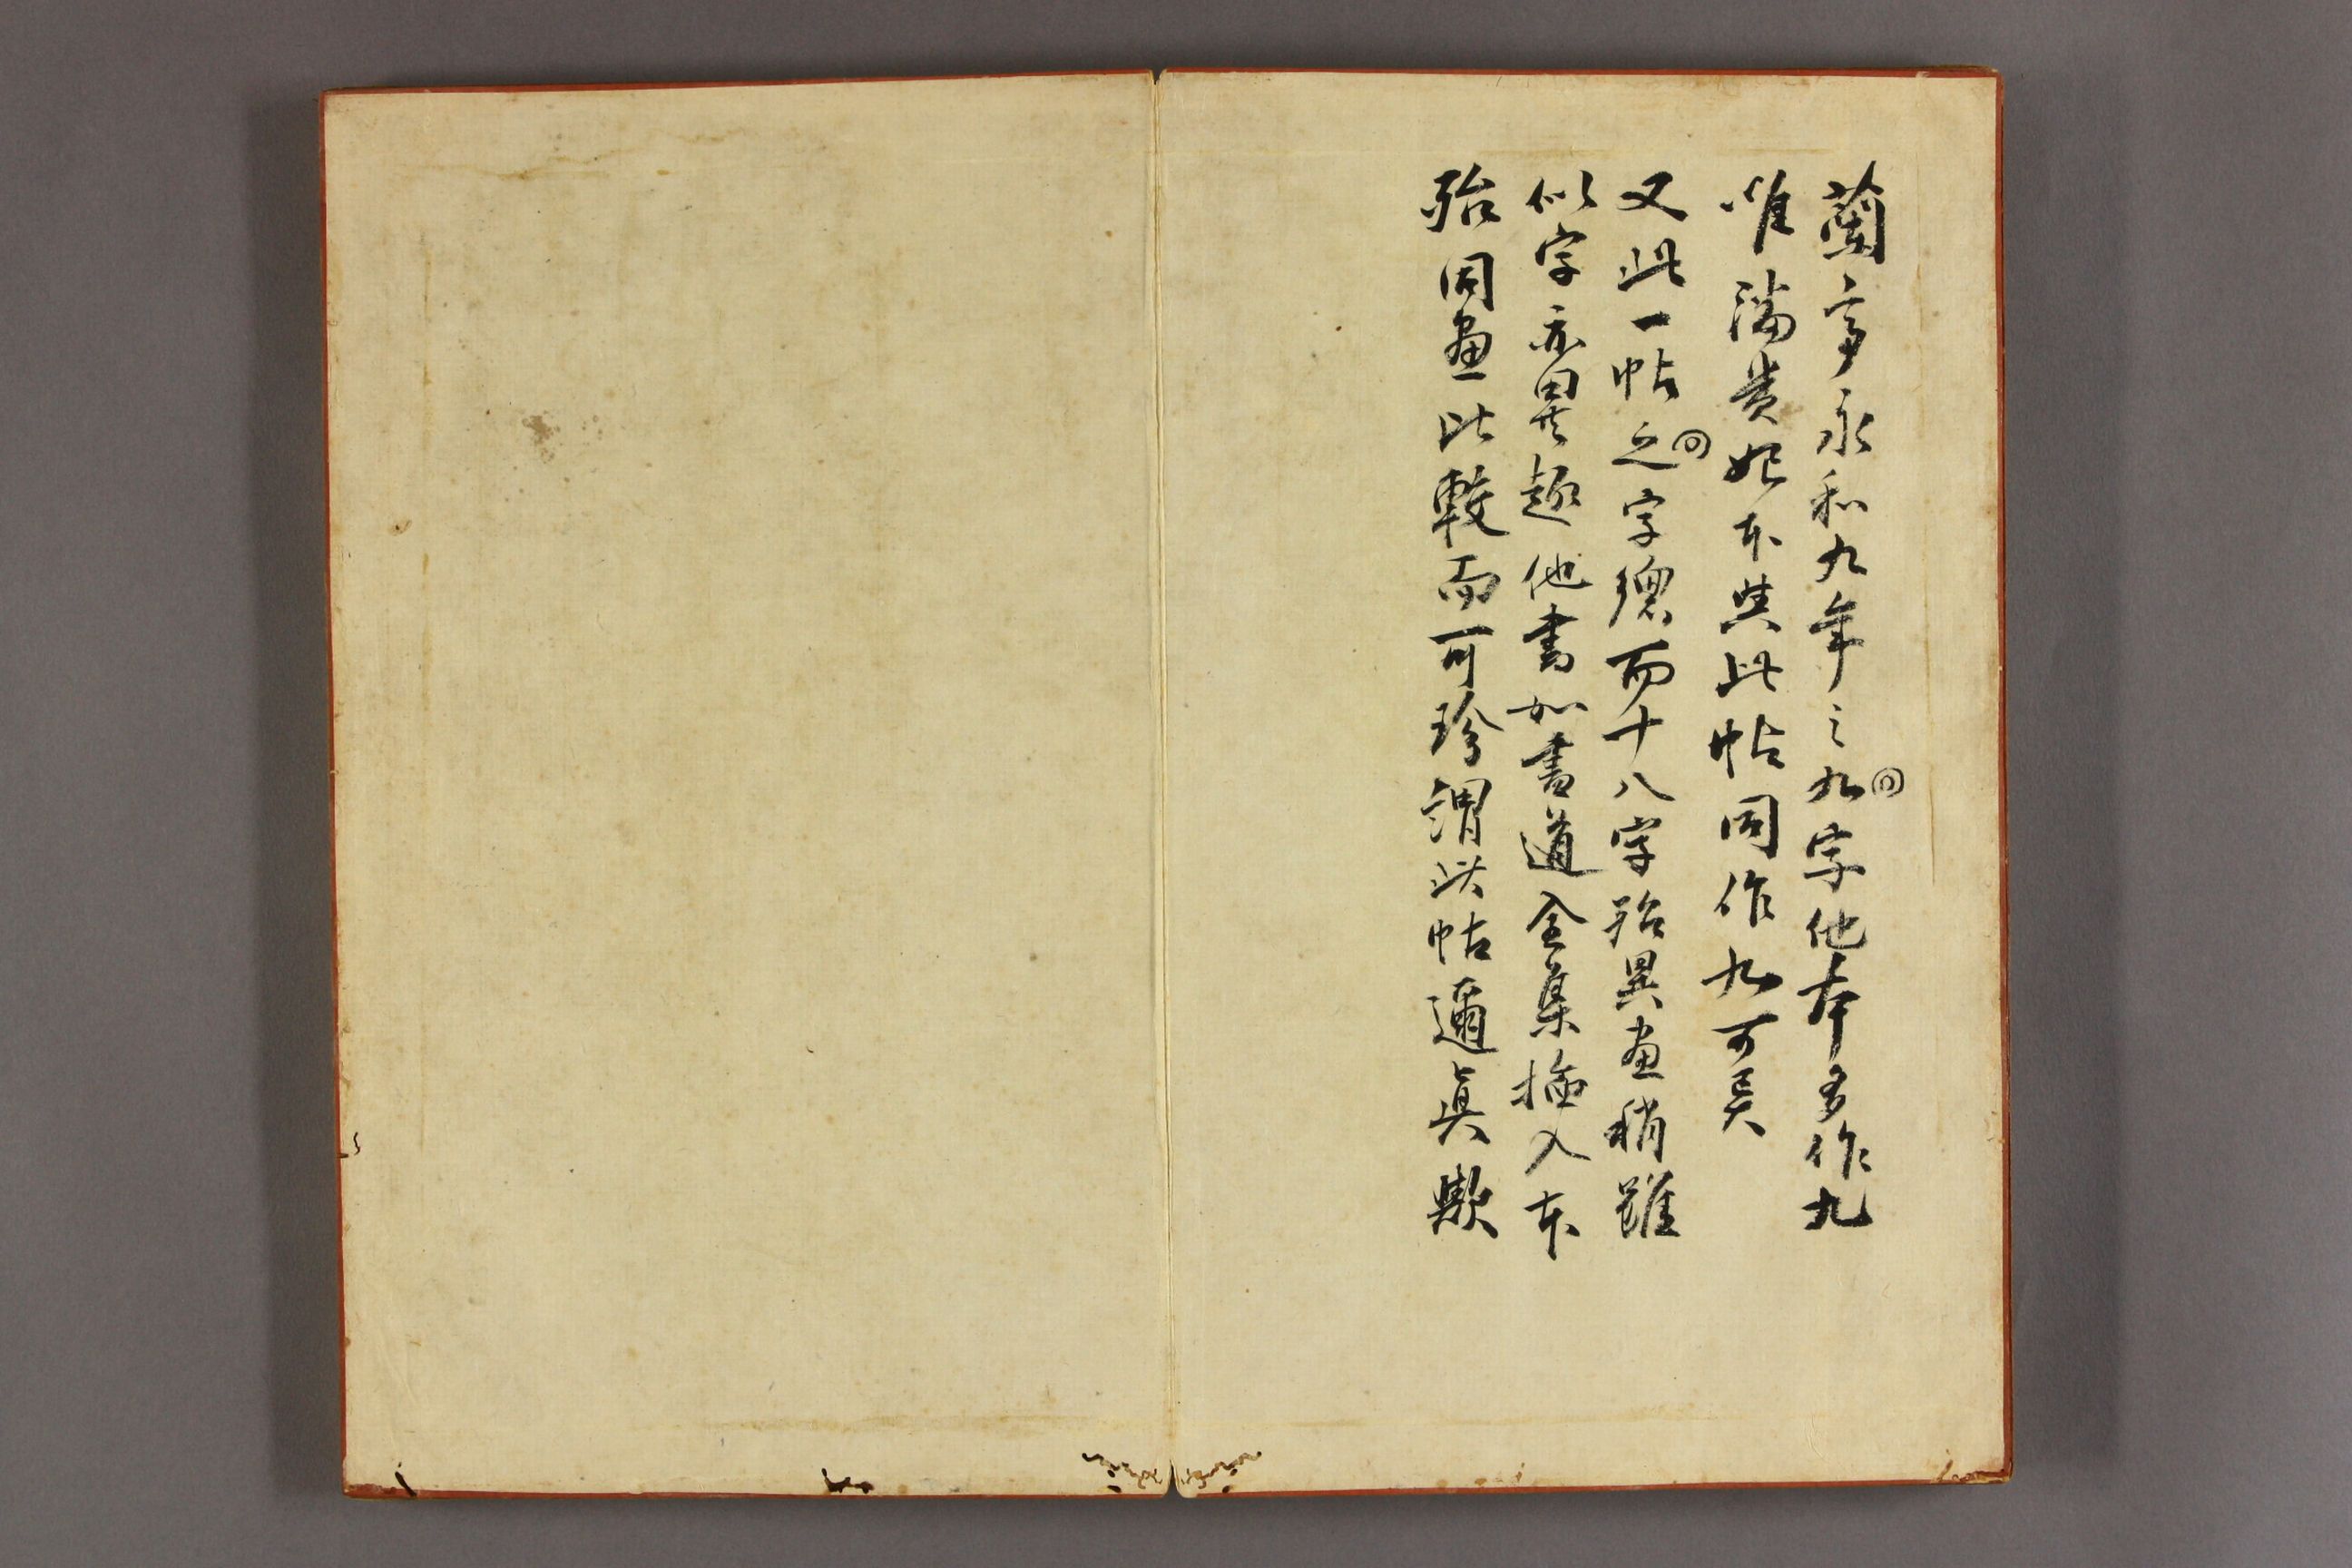 蘭亭永和九年之九字他本多作九
唯潘貴妃本與此帖同作九可異
又此一帖之字總而十八字殆異畫稍雖
似字亦異趣他書如書道全集揷入本
殆同畫比較而可珍謂此帖逼眞歟